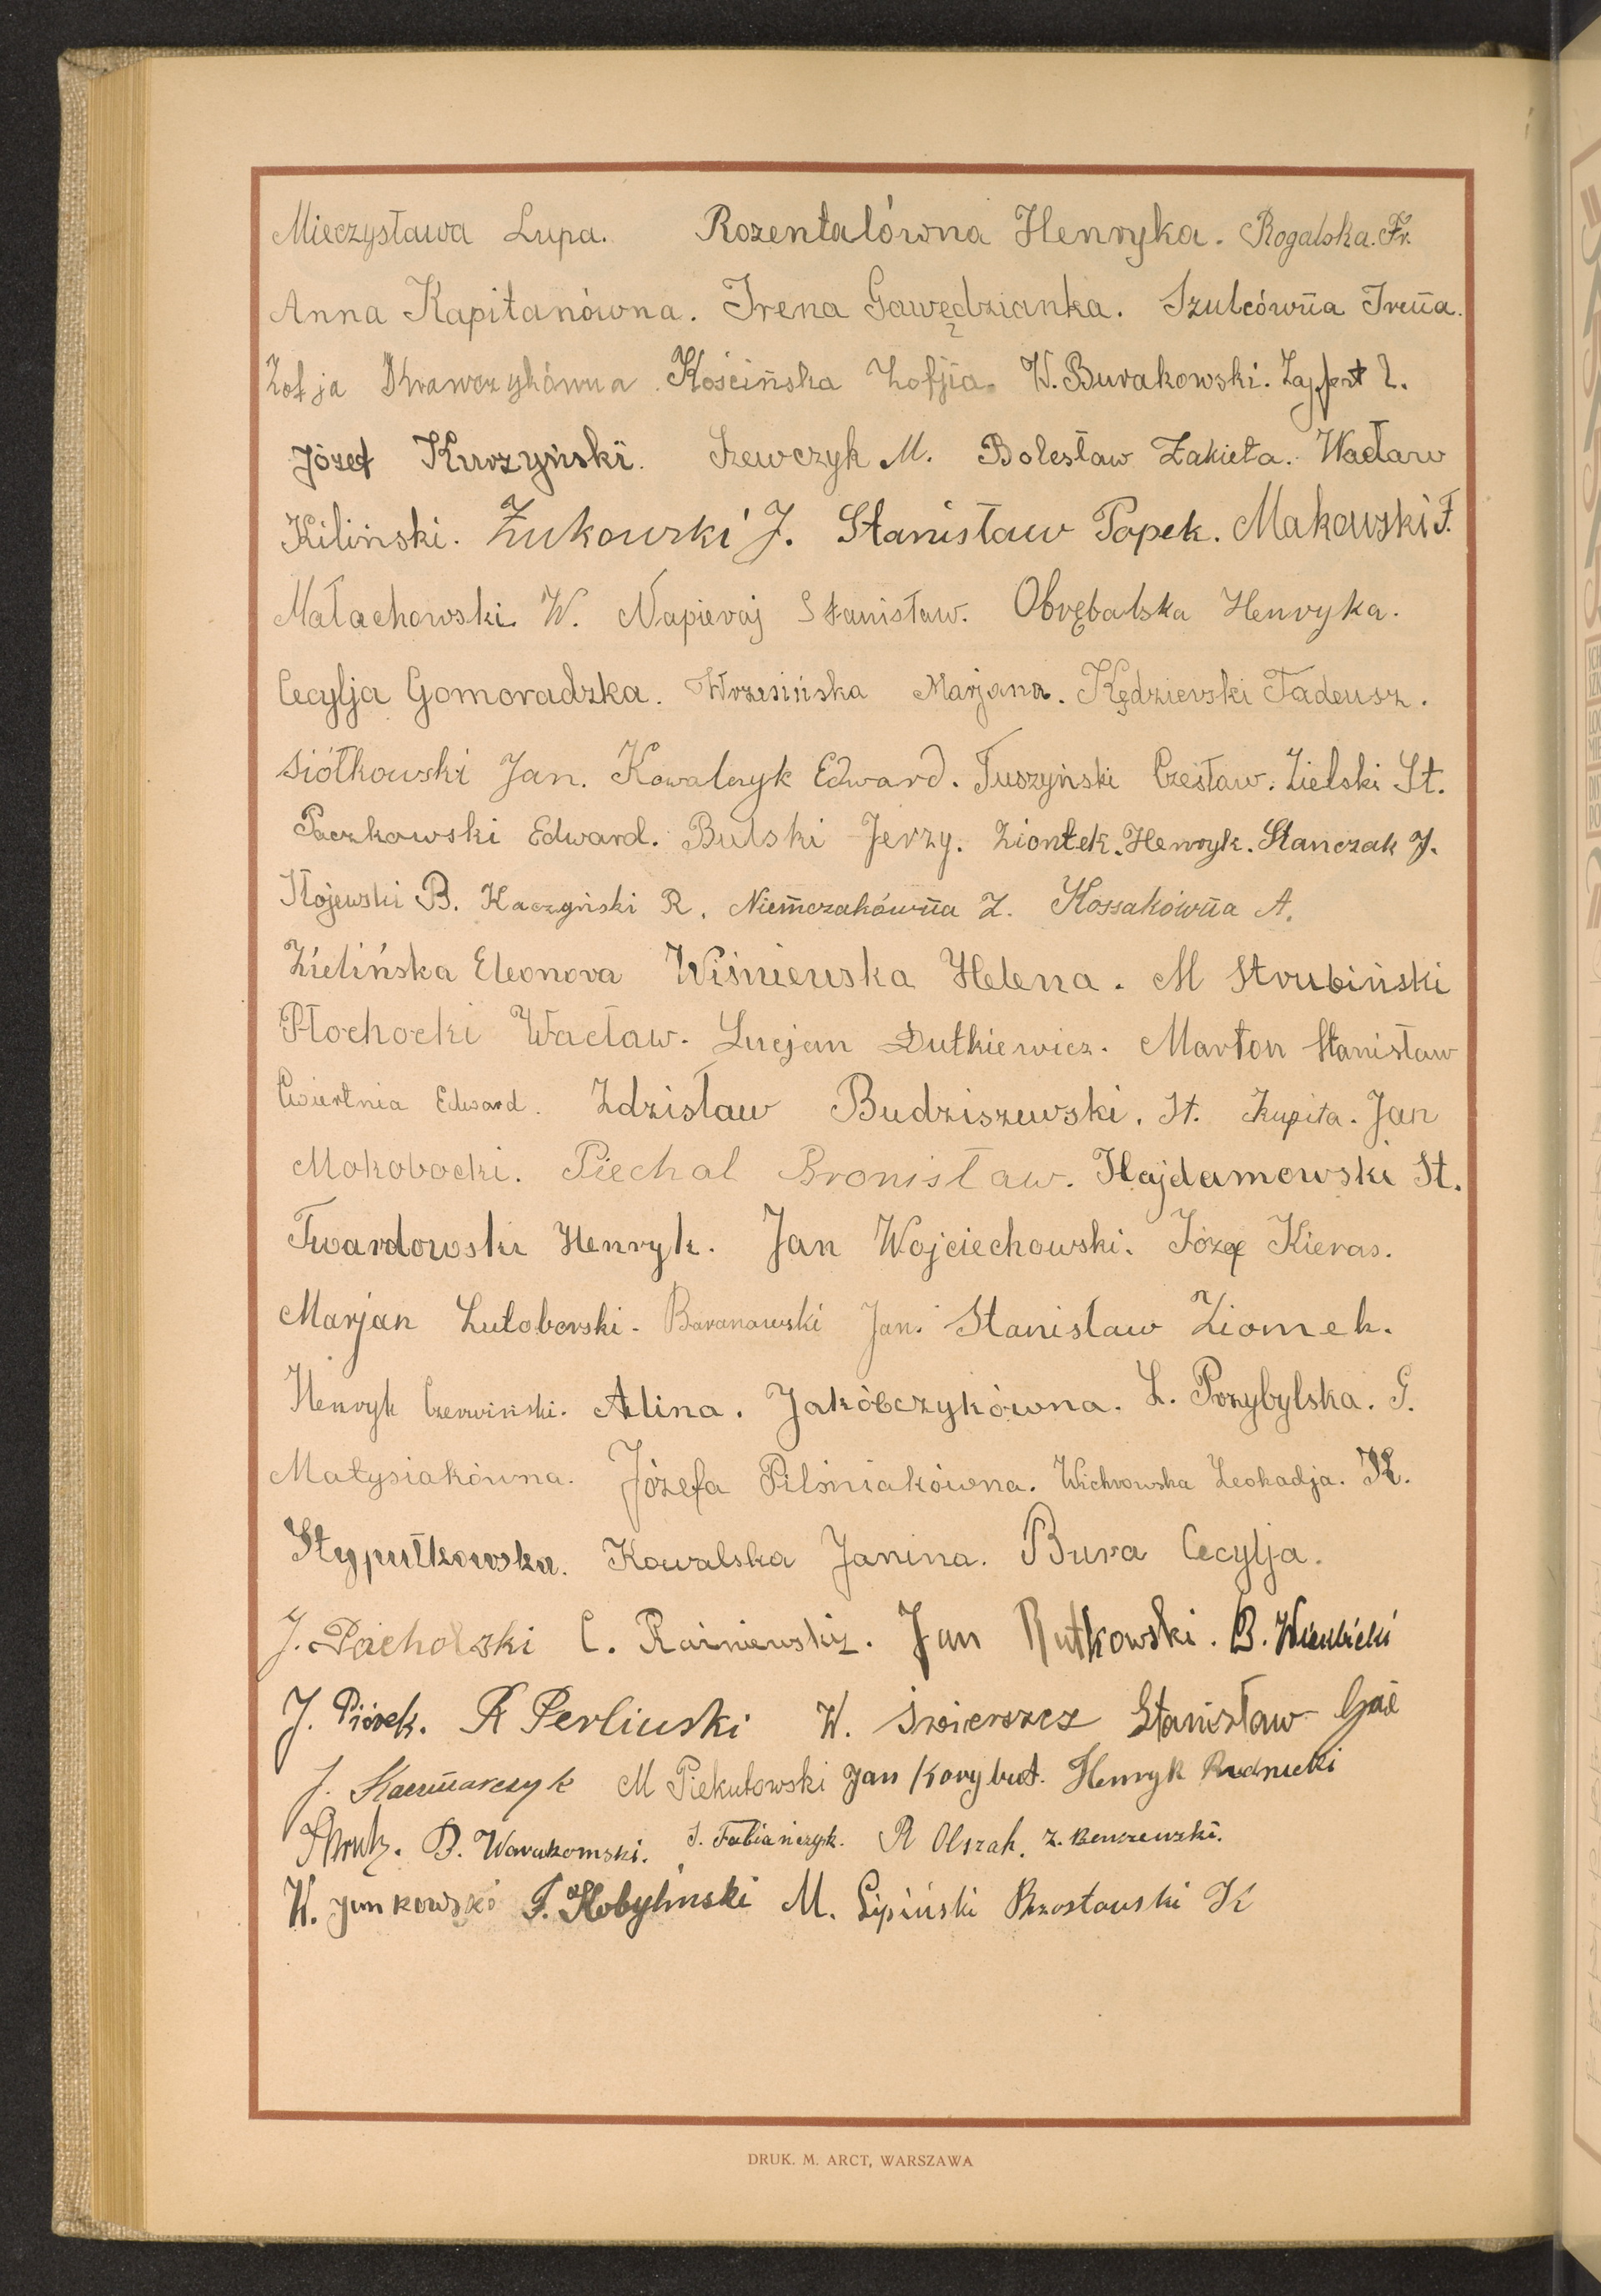 Mieczysława Lupa. Rozentalówna Henryka. Rogalska. Fr.
Anna Kapitanówna. Irena Gawędzianka. Szulcówna Irena.
Zofja Krawczykówna. Kościńska Zofjia. W. Burakowski. Zajfert Z.
Józef Kurzyński. Szewczyk M. Bolesław Żakieta. Wacław
Kiliński. Żukowski J. Stanisław Papek. Makowski F.
Małachowski W. Napieraj Stanisław. Obrębalska Henryka.
Cecylja Gomoradzka. Wrzesińska Marjana. Kędzierski Tadeusz.
Siółkowski Jan. Kowalczyk Edward. Tuszyński Czesław. Zielski St.
Paczkowski Edward. Bulski Jerzy. Ziontek. Henryk. Stanczak J.
Stojewski B. Kaczyński R. Niemczakówna Z. Kossakówna A.
Zielińska Eleonora Wiśniewska Helena. M Strubiński
Płochocki Wacław. Lucjan Dutkiewicz. Marton Stanisław
Ćwiertnia Edward. Zdzisław Budziszewski. St. Kupita. Jan
Mokobocki. Piechal Bronisław. Hajdamowski St.
Twardowski Henryk. Jan Wojciechowski. Józef Kieras.
Marjan Lutoborski. Baranowski Jan. Stanisław Ziomek.
Henryk Czerwiński. Alina. Jakóbczykówna. L. Przybylska. G.
Matysiakówna. Józefa Pilśniakówna. Wichrowska Leokadja. K.
Stypułkowska. Kowalska Janina. Bura Cecylja.
J. Pacholski C. Rainiewski. Jan Rutkowski. B. Wierbicki
J. Piórek. R Perliński W. Świerszcz Stanisław Gać
J. Kaczmarczyk M Piekutowski Jan Korybut. Henryk Rudnicki
B. Warakomski. S. Fabiańczyk. R Olszak. Z. Benszewski.
W. Jankowski F. Kobyliński M. Lipiński Brzostowski K
DRUK. M. ARCT, WARSZAWA